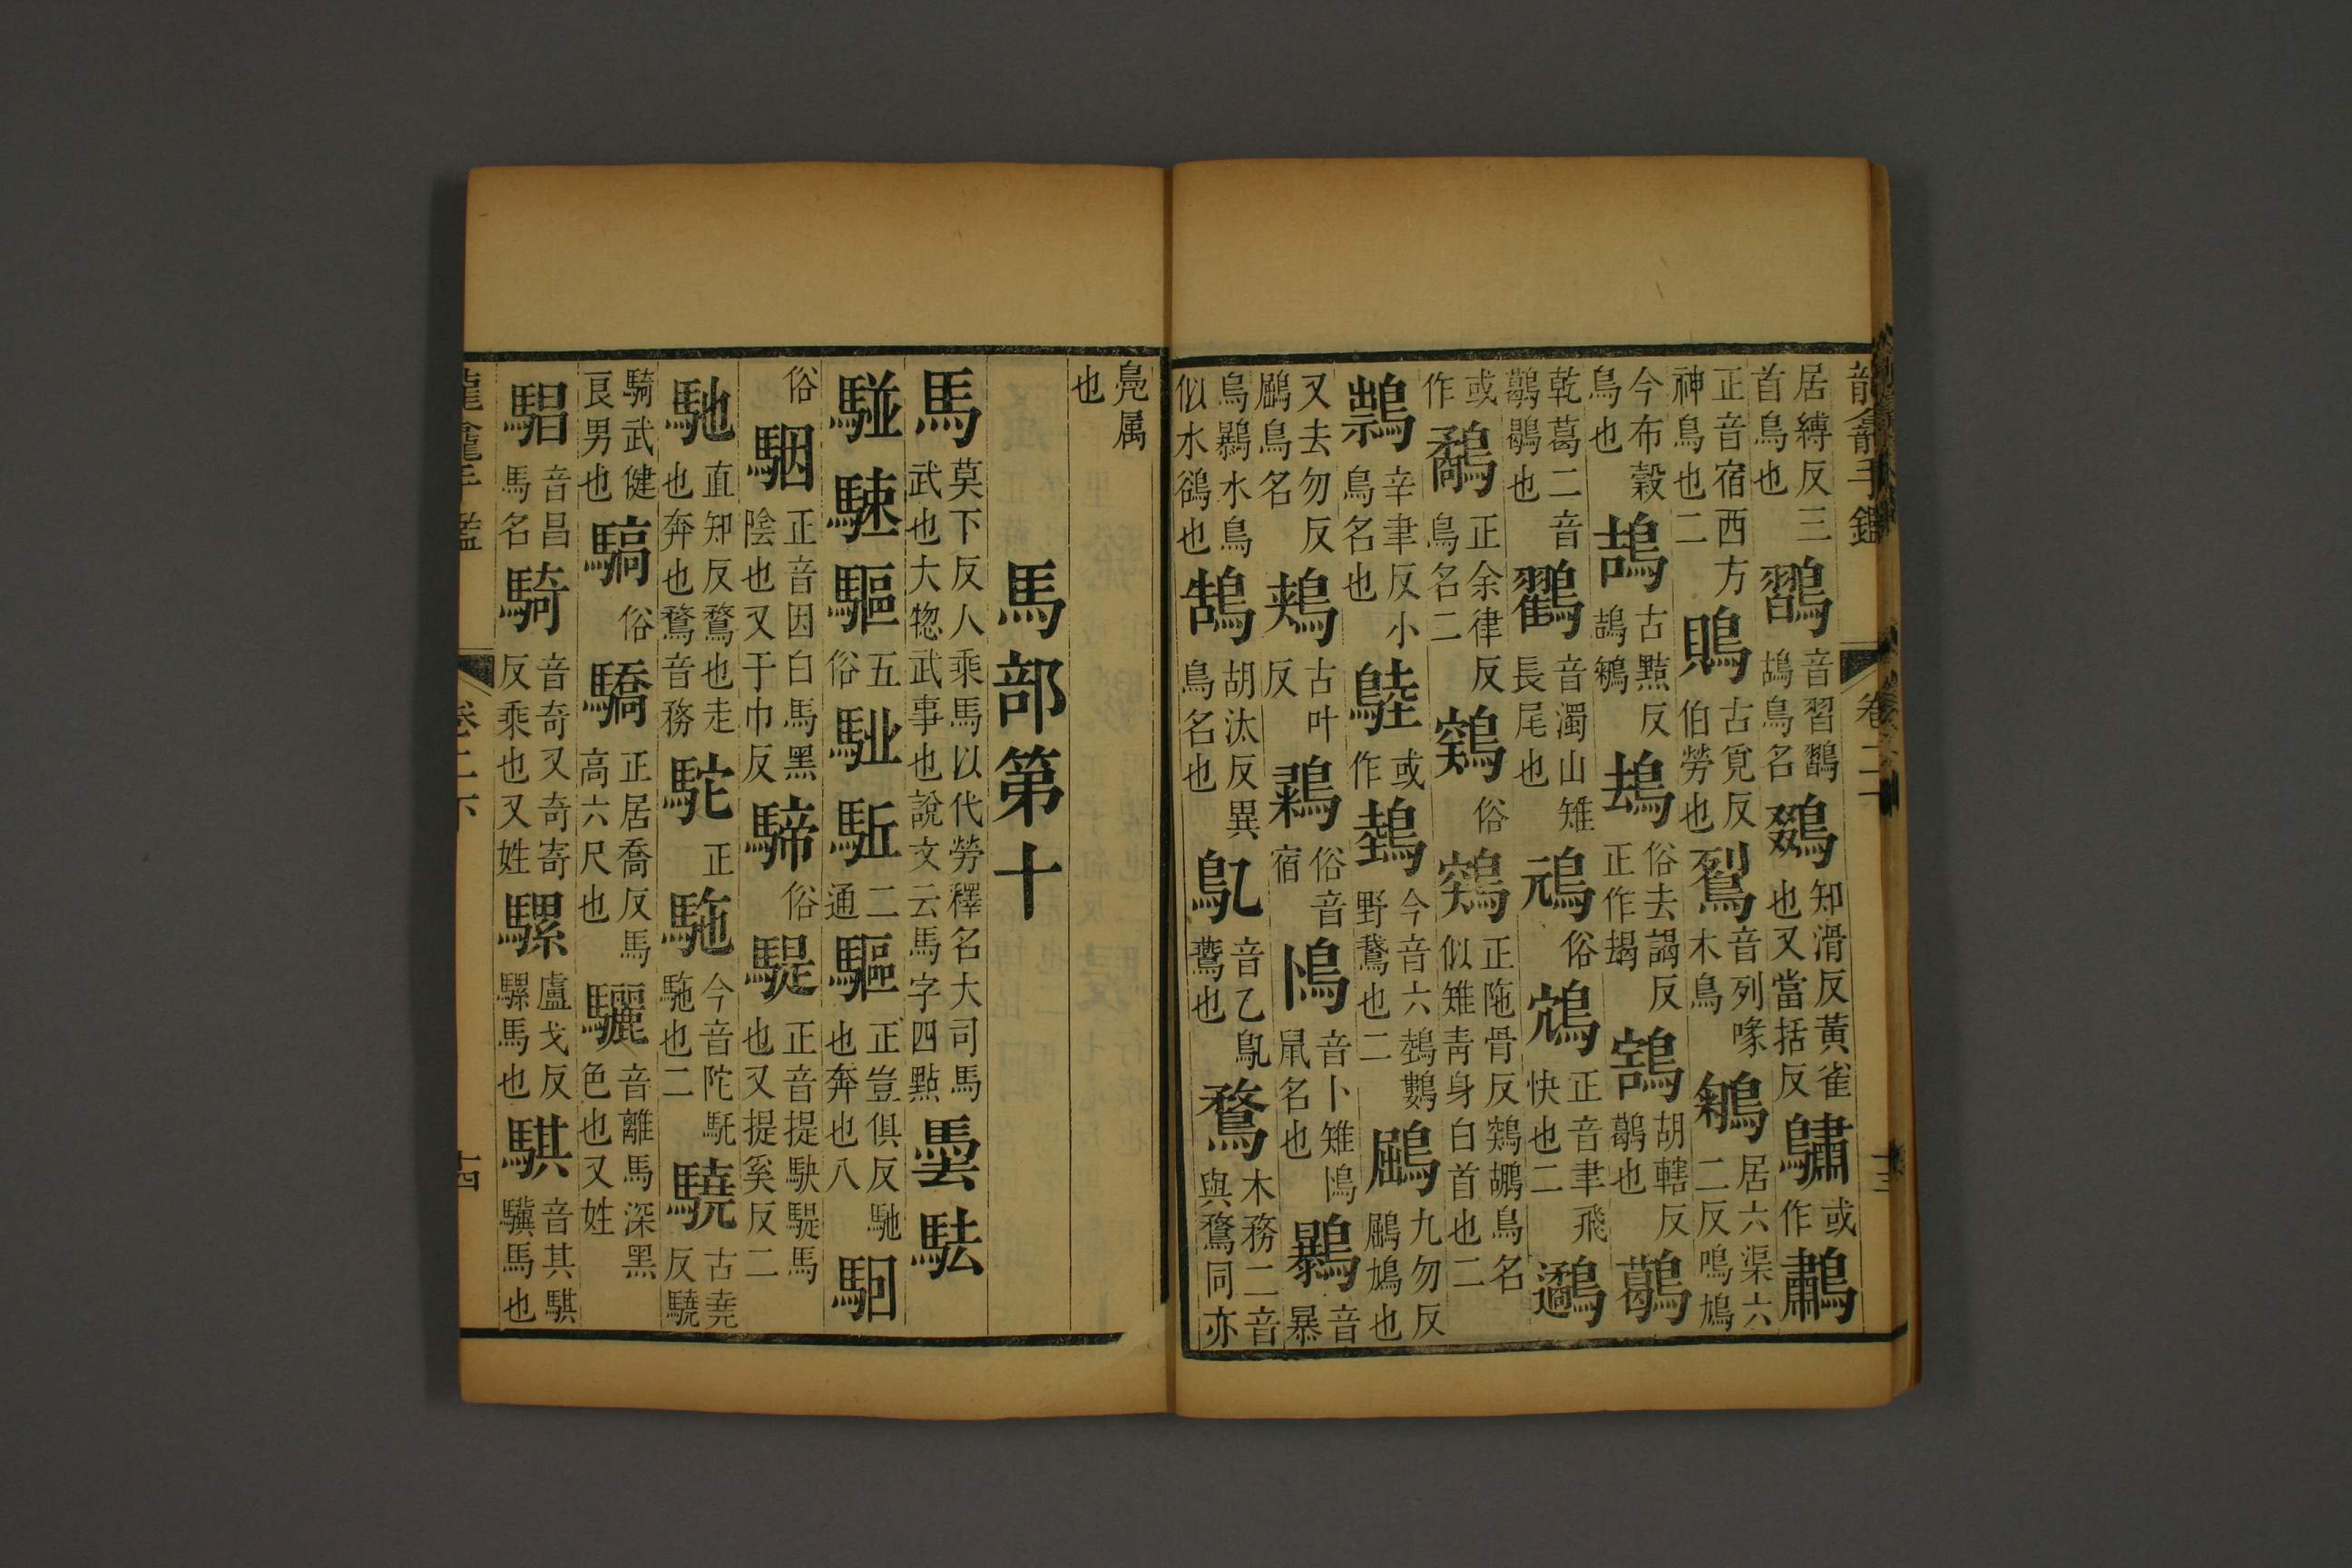 龍龕手鑑 卷二下 十三
居縛反三首鳥也 鰼 音習鰼鴣鳥名 鵽 知滑反黃雀也又當括反 鷫 或作 鷫
正音宿西方神鳥也二 鶪 古覓反伯勞也 鴷 音列喙木鳥 鵴 居六渠六二反鳴鳩
今布穀鳥也 鴶 古黠反鴶鵴 俗去謁反正作朅 鶷 胡轄反鶡也 鶡
乾葛二音鶡鶡也 鸐 音濁山雉長尾也 俗 鴥 正音聿飛快也二
或作 鷸 正余律反鳥名二 鶟 俗 鶟 正陁骨反鶟鶘鳥名似雉青身白首也二
辛聿反小鳥名也 鵱 或作 鵱 今音六鵱鷜野鵝也二 鶌 九勿反鶌鳩也
又去勿反鶌鳥名 鵊 古叶反 俗音宿 音卜雉鼠名也 鸔 音暴
鳥鸔水鳥似水鵒也 鵠 胡沃反異鳥名也 鳦 音乙鳦鷰也 鶩 木務二音與鶩同亦
鳧属也
馬部第十
馬 莫下反人乘馬以代勞釋名大司馬武也大揔武事也說文云馬字四點
驅 五俗 二通 驅 正豈俱反馳也奔也八 駰
俗 駰 正音因白馬黑陰也又于巾反 騠 俗 騠 正音提駃騠馬也又提奚反二
馳 直知反騖也走也奔也騖音務 駝 正 駞 今音陀馲駞也二 驍 古堯反驍
騎武健良男也 騙 俗 驕 正居喬反馬高六尺也 驪 音離馬深黑色也又姓
䮖 音昌馬名 騎 音奇又奇寄反乘也又姓 騾 盧戈反騾馬也 騏 音其騏驥馬也
龍龕手鑑 卷二下 十四